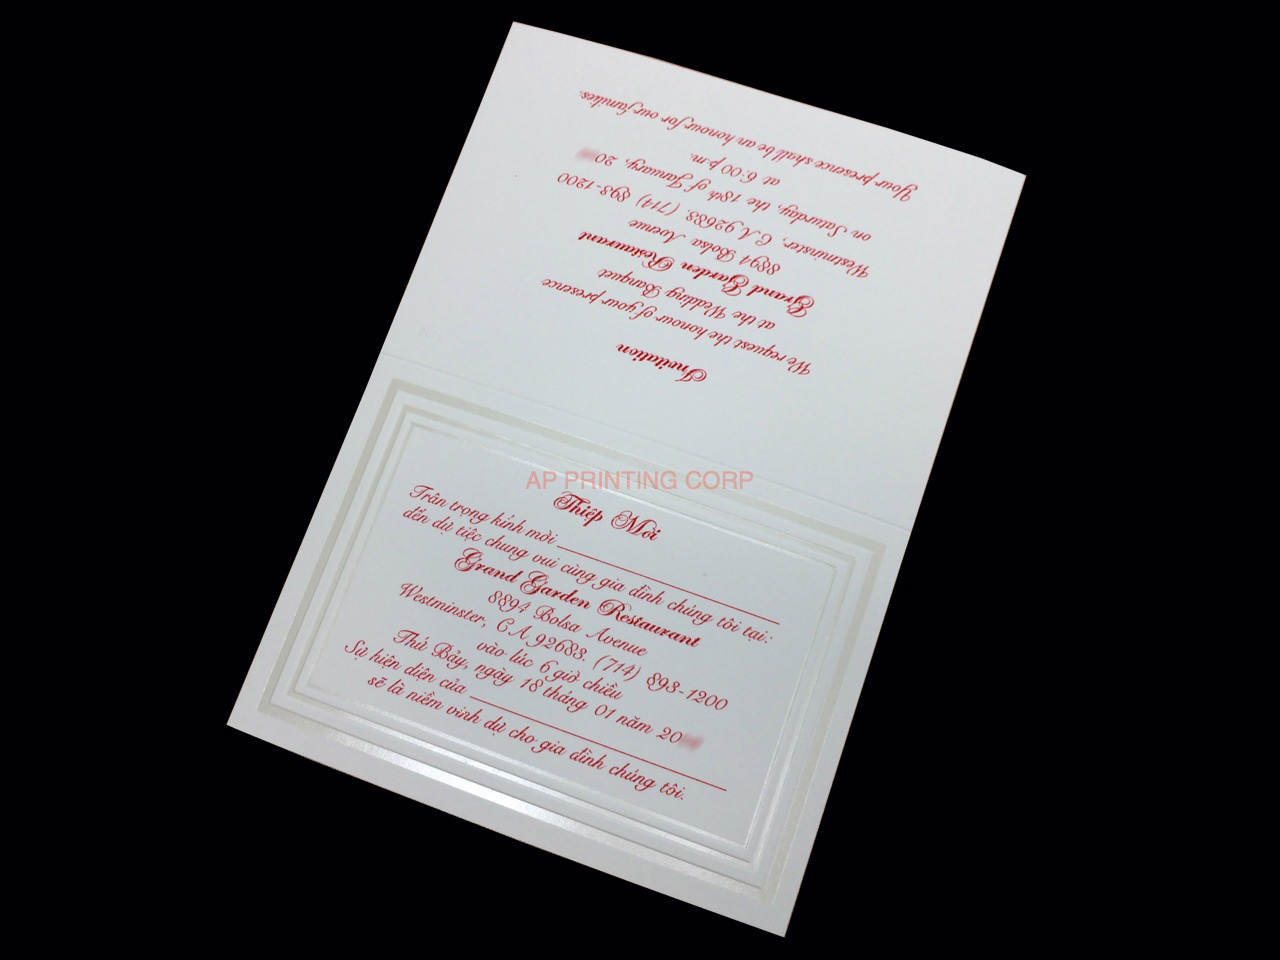 Invitation
We request the honour of your presence
at the Wedding Banquet
Grand Garden Restaurant
8894 Bolsa Avenue
Westminster, CA 92683. (714) 893-1200
on Saturday, the 18th of January, 20
at 6:00 p.m.
Your presence shall be an honour for our families.
AP PRINTING CORP
Thiệp Mời
Trân trọng kính mời
đến dự tiệc chung vui cùng gia đình chúng tôi tại:
Grand Garden Restaurant
8894 Bolsa Avenue
Westminster, CA 92683. (714) 893-1200
vào lúc 6 giờ chiều
Thứ Bảy, ngày 18 tháng 01 năm 20
Sự hiện diện của
sẽ là niềm vinh dự cho gia đình chúng tôi.